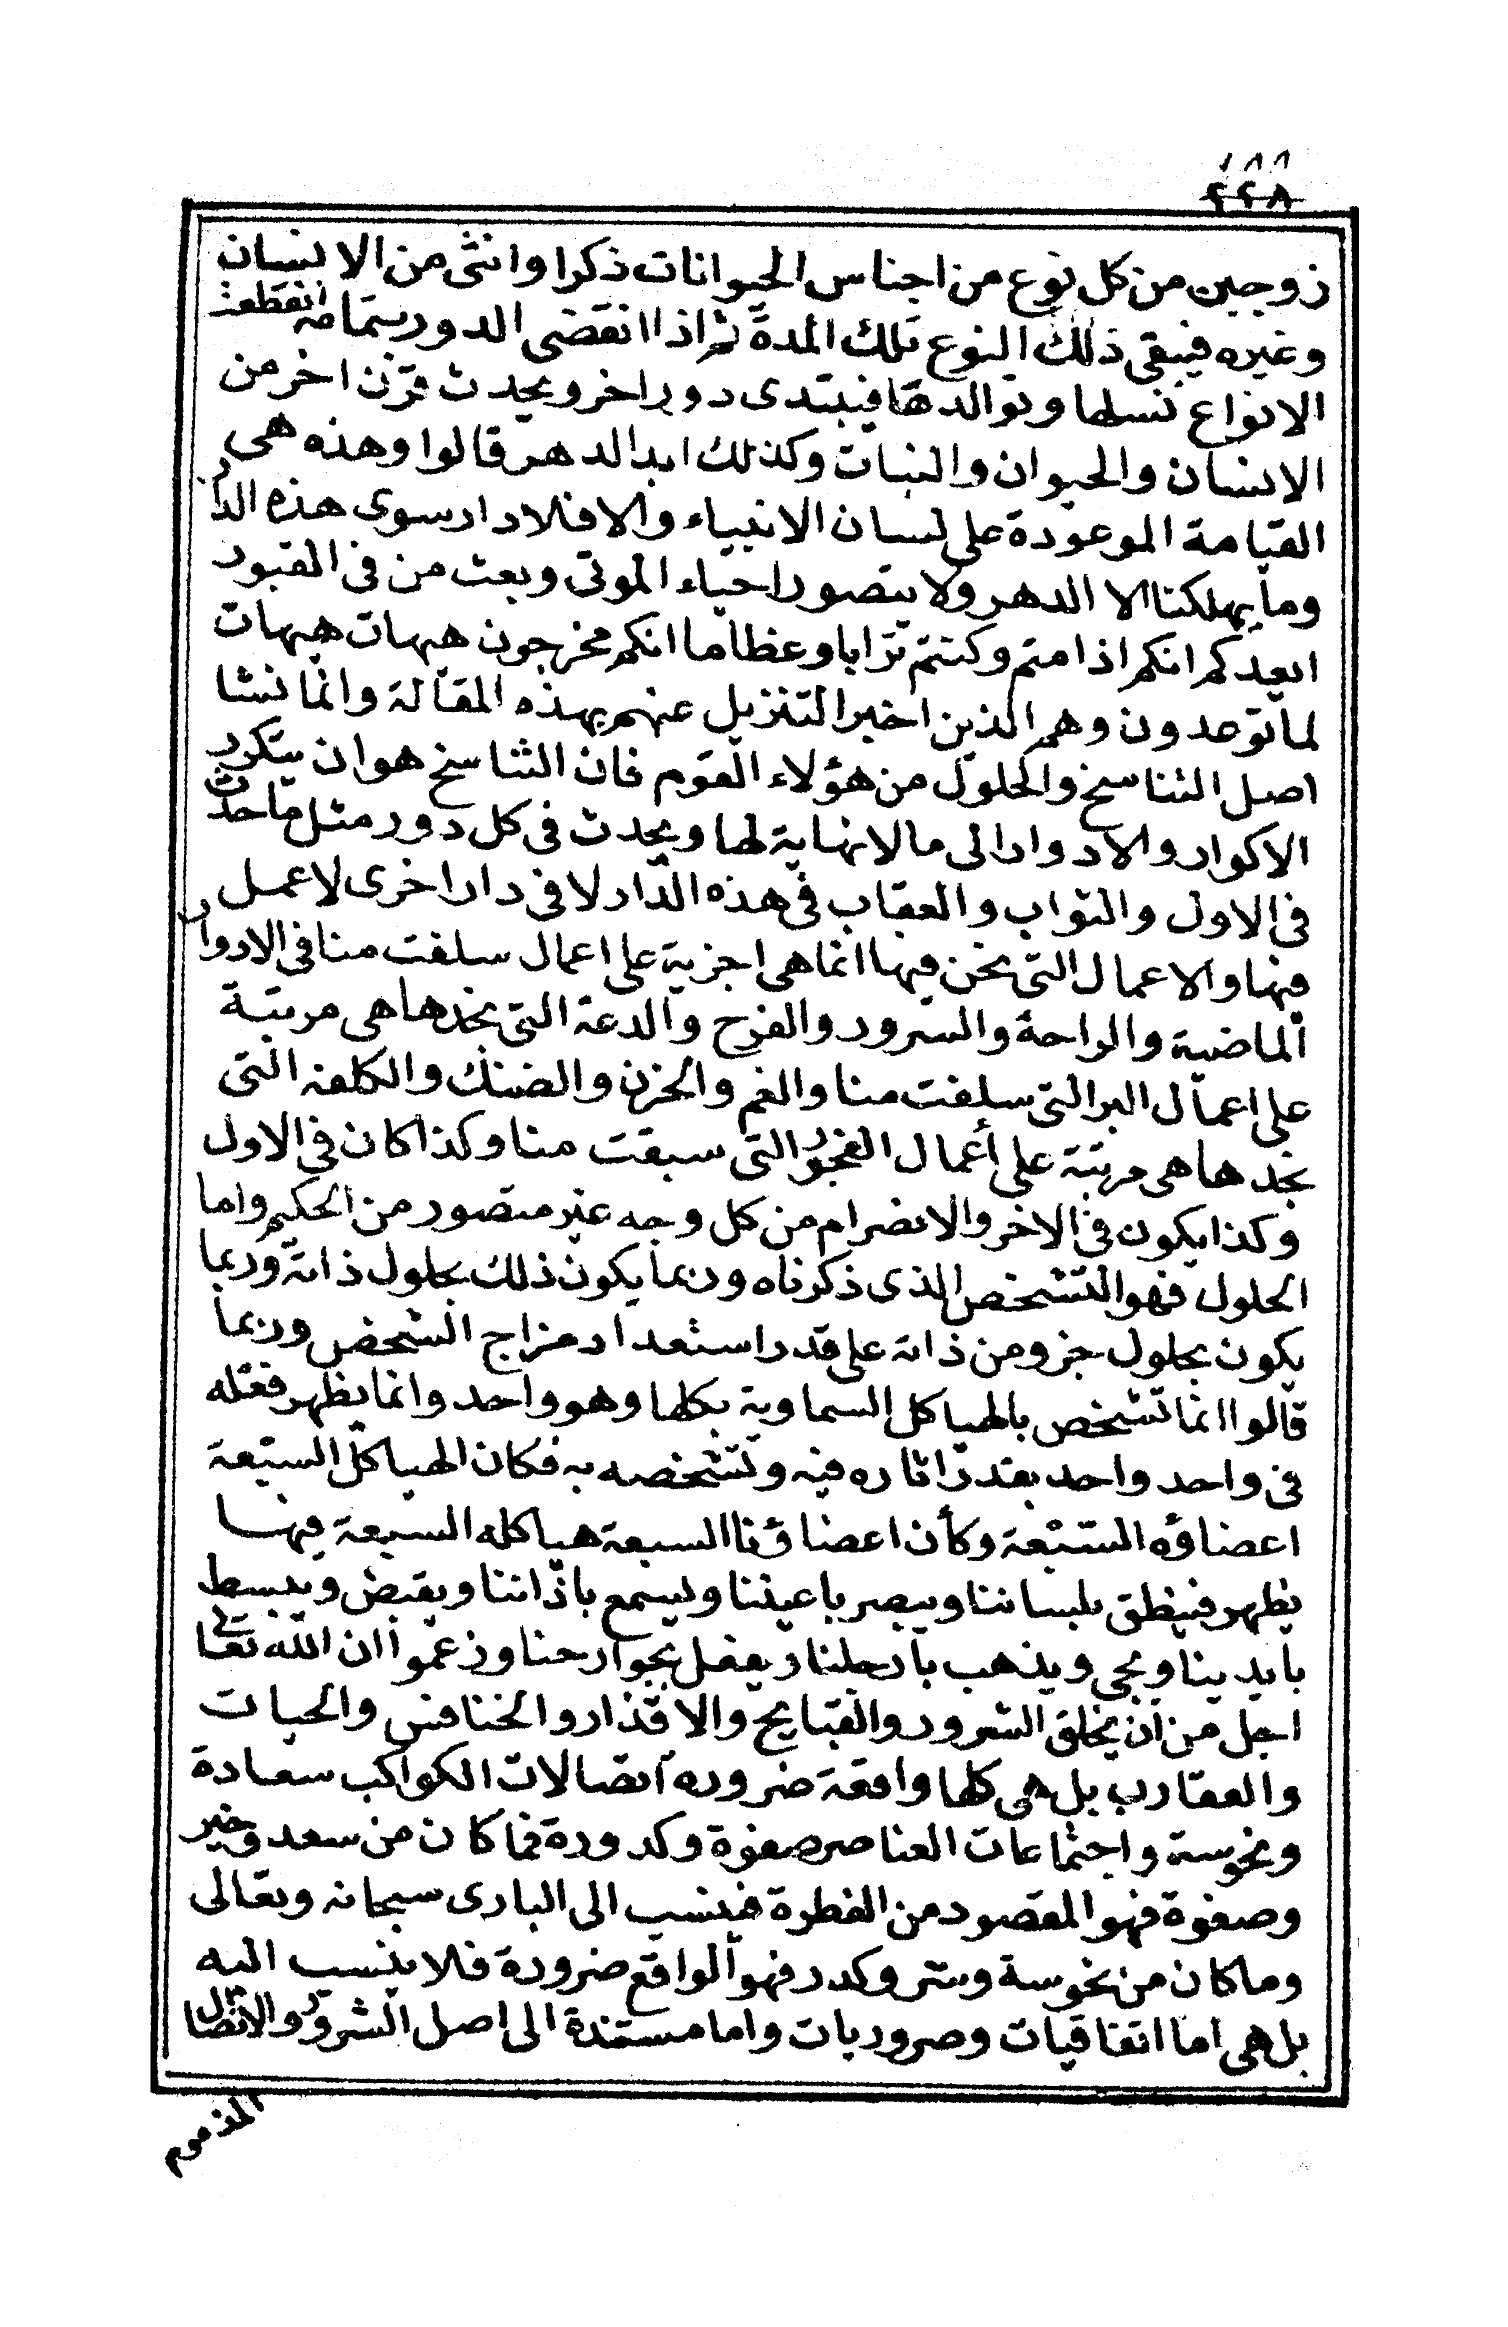 ١٨٨
٢٢٨
زوجين من كل نوع من اجناس الحيوانات ذكرا وانثى من الانسان
وغيره فيبقى ذلك النوع تلك المدة ثم اذا انقضى الدور بتمامه انقطعت
الانواع نسلها وتوالدها فيبتدى دور اخر ويحدث قرن اخر من
الانسان والحيوان والنبات وكذلك ابد الدهر قالوا وهذه هى
القيامة الموعودة على لسان الانبياء والا فلا دار سوى هذه الدار
وما يهلكنا الا الدهر ولا يتصور احياء الموتى وبعث من فى القبور
ايعدكم انكم اذا متم وكنتم ترابا وعظاما انكم مخرجون هيهات هيهات
لما توعدون وهم الذين اخبر التنزيل عنهم بهذه المقالة وانما نشا
اصل التناسخ والحلول من هؤلاء القوم فان التناسخ هو ان يتكرر
الاكوار والادوار الى ما لا نهاية لها ويحدث فى كل دور مثل ما حدث
فى الاول والثواب والعقاب فى هذه الدار لا فى دار اخرى لا عمل
فيها والاعمال التى نحن فيها انما هى اجزية على اعمال سلفت منا فى الادوار
الماضية والراحة والسرور والفرح والدعة التى نجدها هى مرتبة
على اعمال البر التى سلفت منا والغم والحزن والضنك والكلفة التى
نجدها هى مرتبة على أعمال الفجور التى سبقت منا وكذا كان فى الاول
وكذا يكون فى الاخر والانصرام من كل وجه غير متصور من الحكيم واما
الحلول فهو التشخص الذى ذكرناه وربما يكون ذلك بحلول ذاته وربما
يكون بحلول جزو من ذاته على قدر استعداد مزاج الشخص وربما
قالوا انما تشخص بالهياكل السماوية بكلها وهو واحد وانما يظهر فعله
فى واحد واحد بقدر اثاره فيه وتشخصه به فكان الهياكل السبعة
اعضاؤه السبعة وكأن اعضاؤنا السبعة هياكله السبعة فيها
يظهر فينطق بلساننا ويبصر باعيننا ويسمع باذاننا ويقبض ويبسط
بايدينا ويجى ويذهب بارجلنا ويفعل بجوارحنا وزعموا ان الله تعالى
اجل من ان يخلق الشرور والقبايح والاقذار والخنافس والحيات
والعقارب بل هى كلها واقعة ضرورة اتصالات الكواكب سعادة
ونحوسة واجتماعات العناصر صفوة وكدورة فما كان من سعد وخير
وصفوة فهو المقصود من الفطرة فينسب الى البارى سبحانه وتعالى
وما كان من نحوسة وشر وكدر فهو الواقع ضرورة فلا ينسب اليه
بل هى اما اتفاقيات وضروريات واما مستندة الى اصل الشرور والاتصال
المذموم